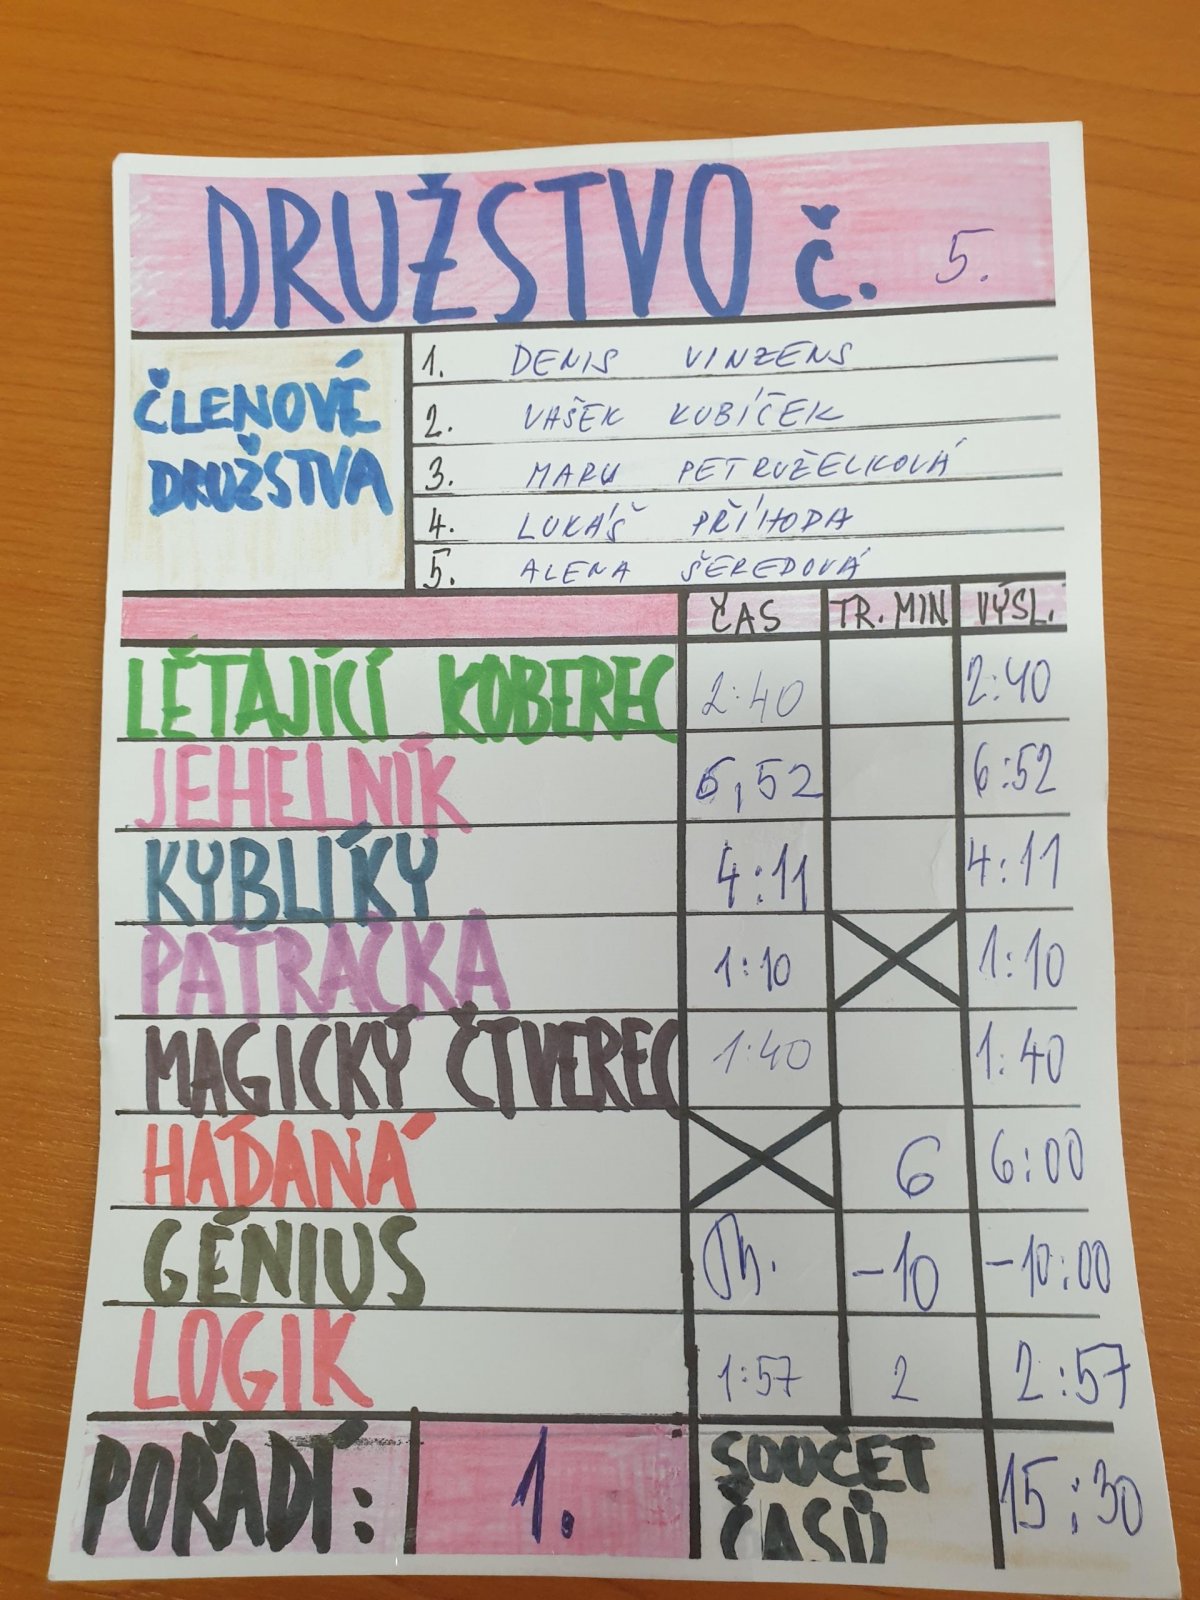 DRUŽSTVO č. 5.
ČLENOVÉ DRUŽSTVA
1. DENIS VINZENS
2. VAŠEK KUBÍČEK
3. MARU PETRUŽELKOVÁ
4. LUKÁŠ PŘÍHODA
5. ALENA ŠEREDOVÁ
ČAS TR. MIN VÝSL.
LÉTAJÍCÍ KOBEREC 2:40 2:40
JEHELNÍK 6,52 6:52
KYBLÍKY 4:11 4:11
PÁTRAČKA 1:10 1:10
MAGICKÝ ČTVEREC 1:40 1:40
HÁDANÁ 6 6:00
GÉNIUS -10 -10:00
LOGIK 1:57 2 2:57
POŘADÍ: 1. SOUČET ČASŮ 15:30